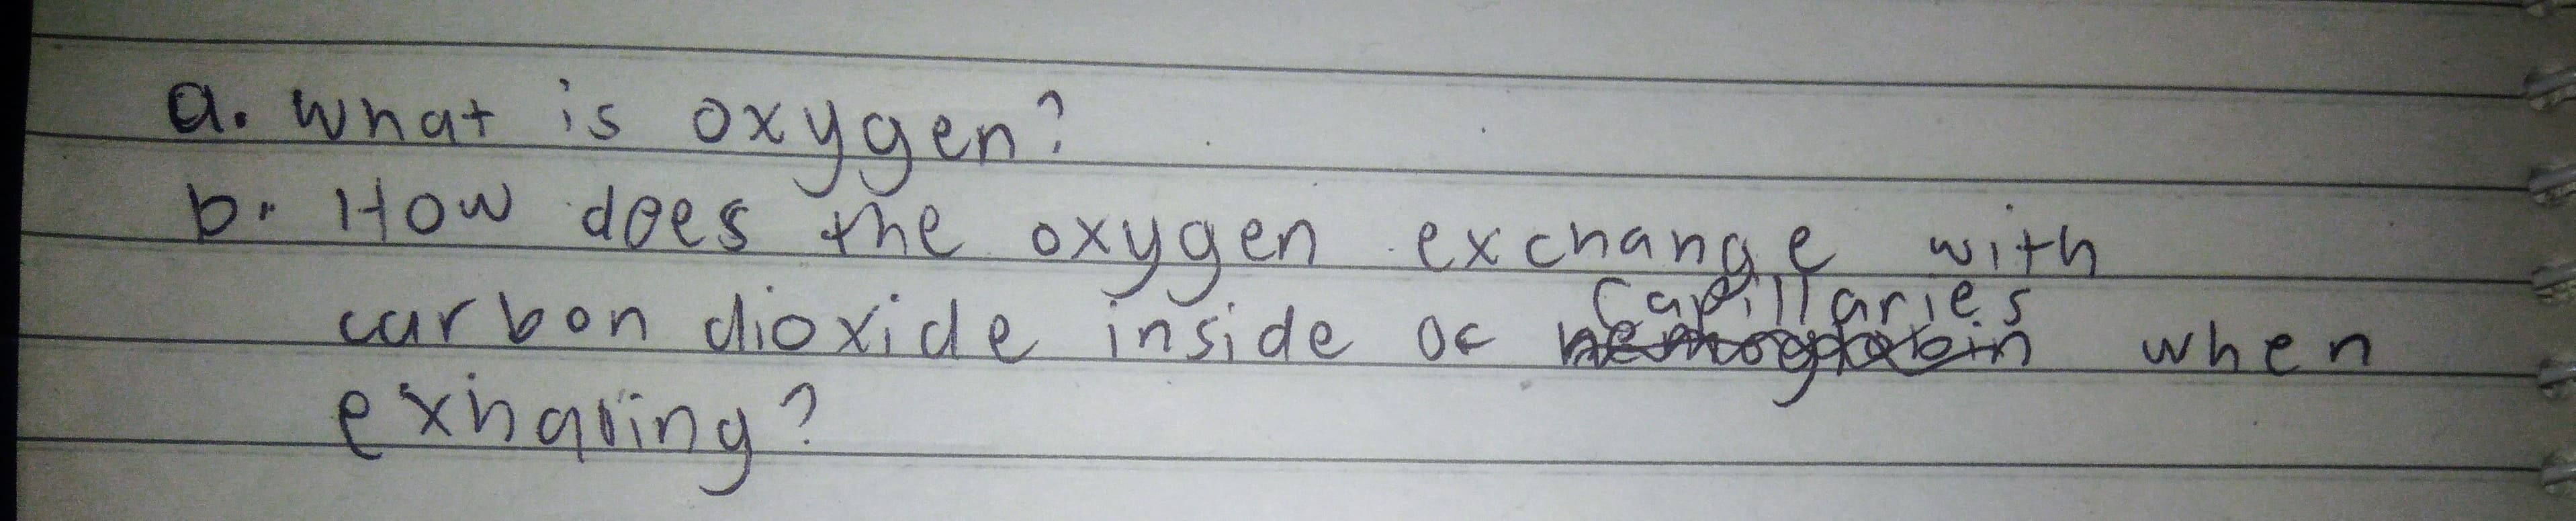 a. What is oxygen?
b. How does the oxygen exchange with
carbon dioxide inside of capillaries when
exhaling?